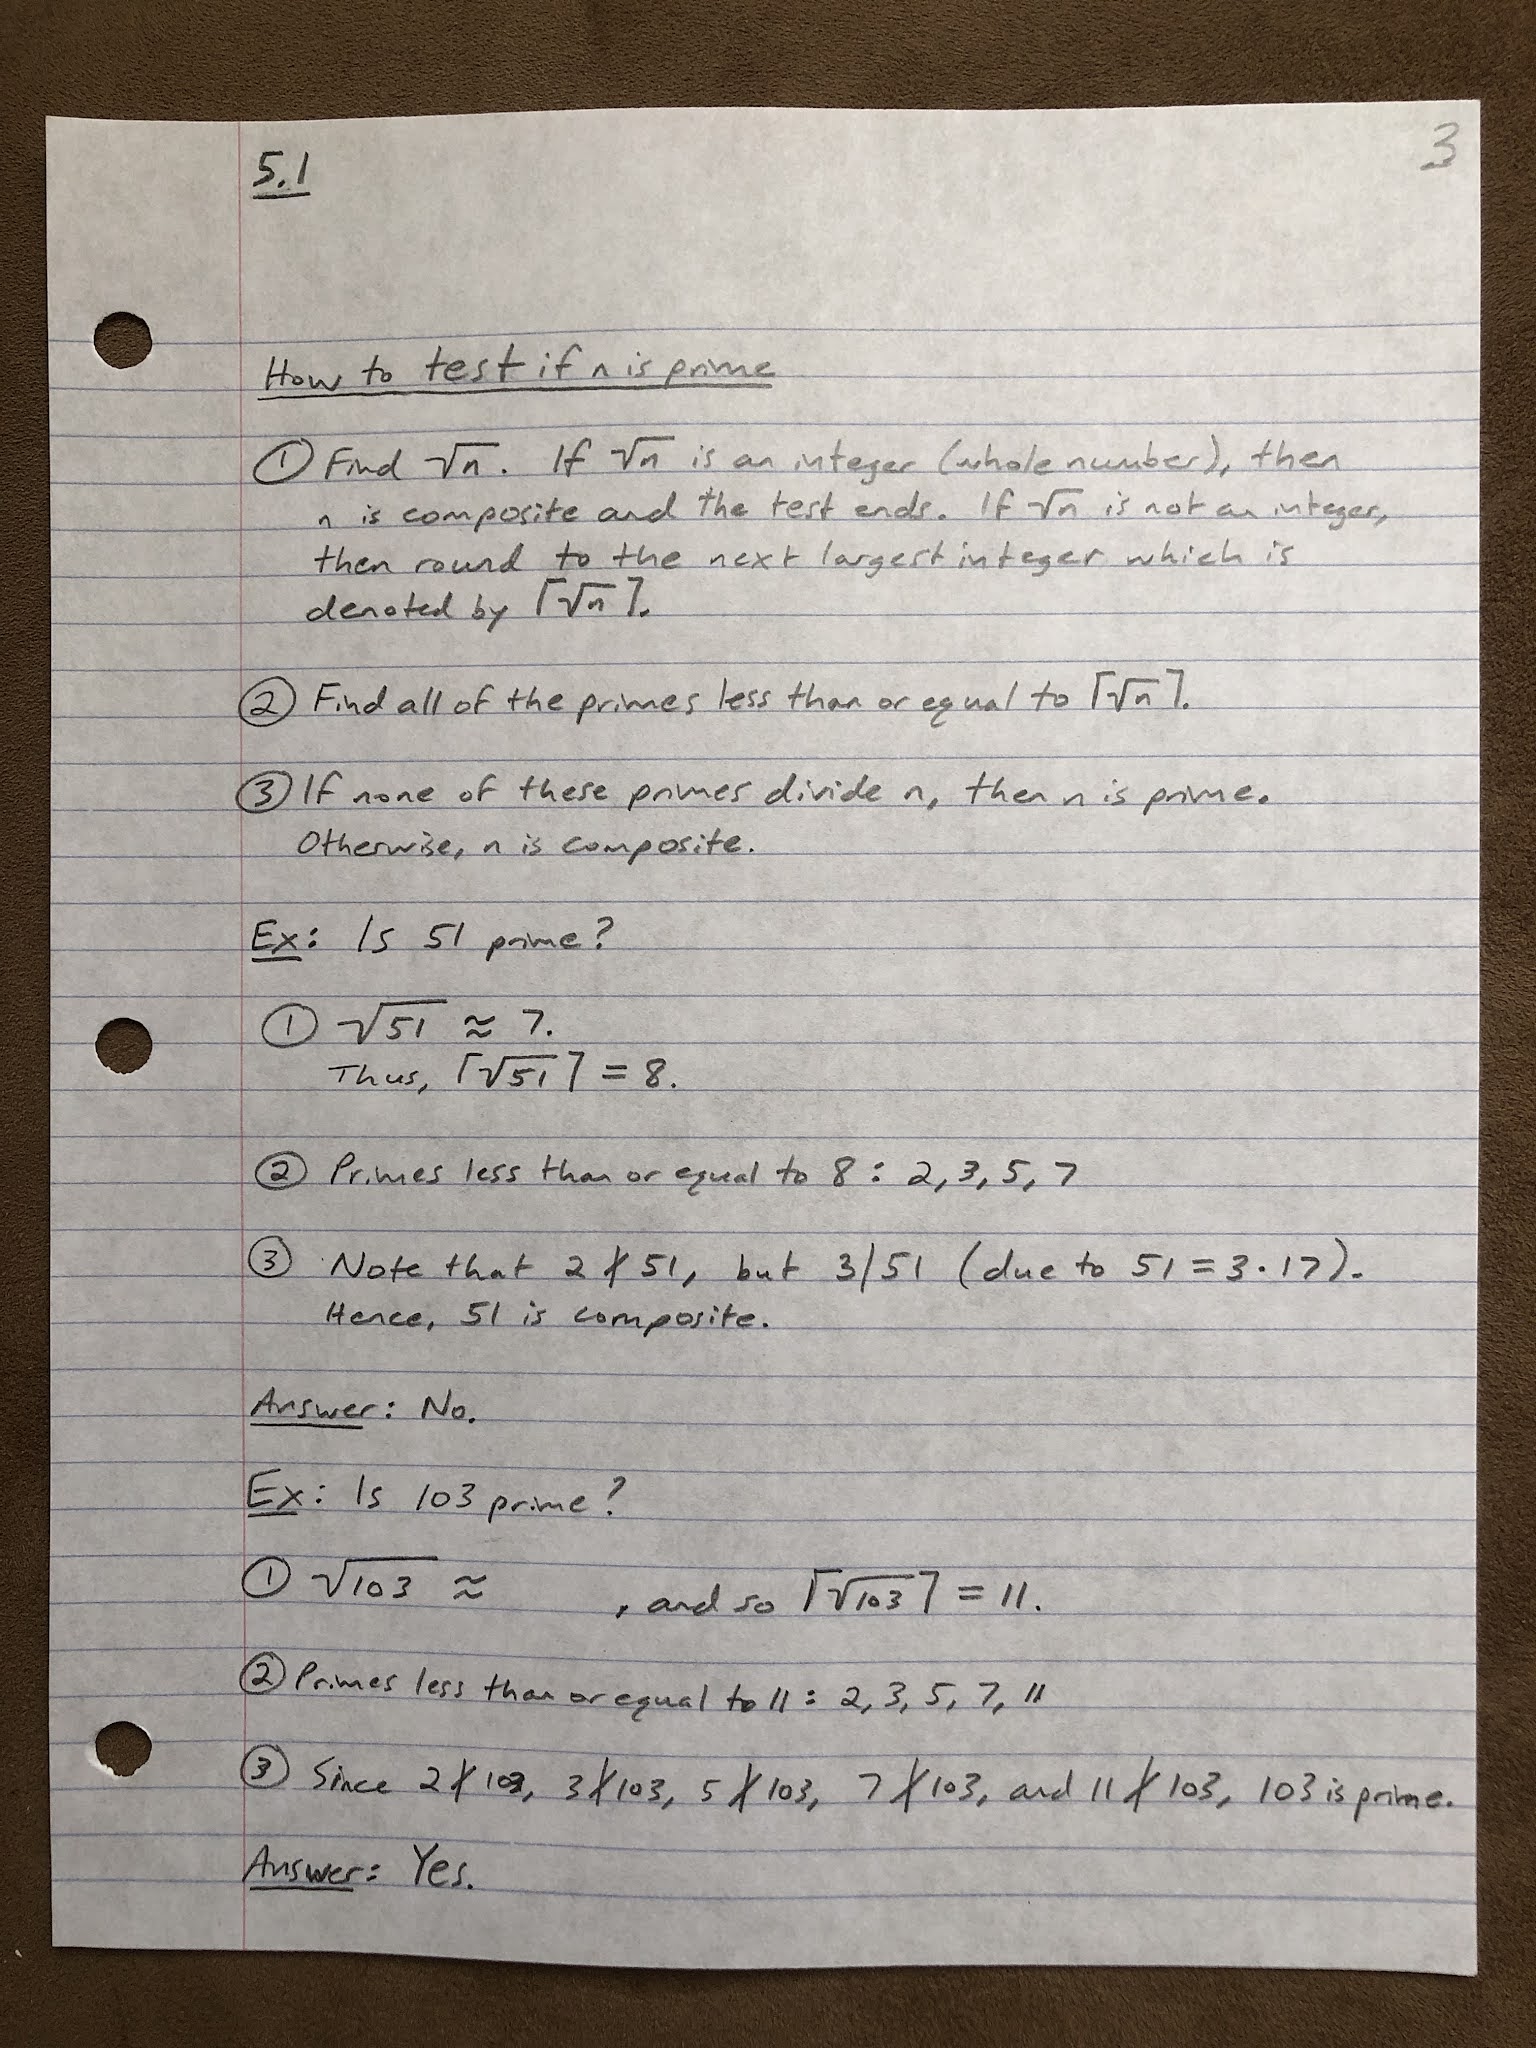 5.1
3
How to test if n is prime
① Find √n. If √n is an integer (whole number), then
n is composite and the test ends. If √n is not an integer,
then round to the next largest integer which is
denoted by ⌈√n⌉.
② Find all of the primes less than or equal to ⌈√n⌉.
③ If none of these primes divide n, then n is prime.
Otherwise, n is composite.
Ex: Is 51 prime?
① √51 ≈ 7.
Thus, ⌈√51⌉ = 8.
② Primes less than or equal to 8: 2, 3, 5, 7
③ Note that 2∤51, but 3|51 (due to 51 = 3·17).
Hence, 51 is composite.
Answer: No.
Ex: Is 103 prime?
① √103 ≈ , and so ⌈√103⌉ = 11.
② Primes less than or equal to 11: 2, 3, 5, 7, 11
③ Since 2∤103, 3∤103, 5∤103, 7∤103, and 11∤103, 103 is prime.
Answer: Yes.